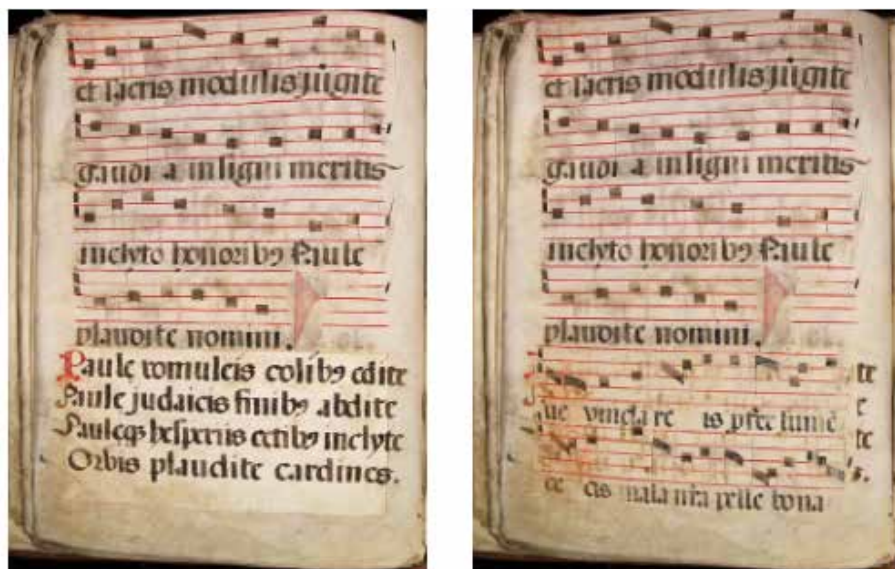 et sacris modulis jugite
gaudi a insigni meritis
inclyto honorib9 Paule
plaudite nomini.
Paule romuleis colib9 edite
Paule judaicis finib9 abdite
Pauleq3 hesperiis cetib9 inclyte
Orbis plaudite cardines.
et sacris modulis jugite
gaudi a insigni meritis
inclyto honorib9 Paule
plaudite nomini.
te
ue vincla re is
te
cis mala pelle bona